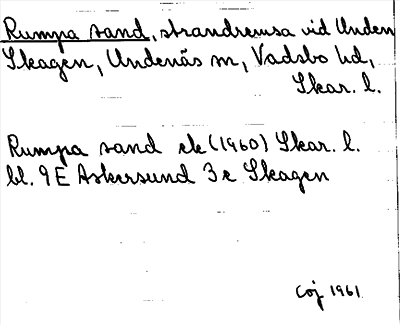 Rumpa sand, strandremsa vid Unden
Skagen, Undenäs sn, Vadsbo hd,
Skar. l.
Rumpa sand ek (1960) Skar. l.
bl. 9E Askersund 3e Skagen
Coj 1961